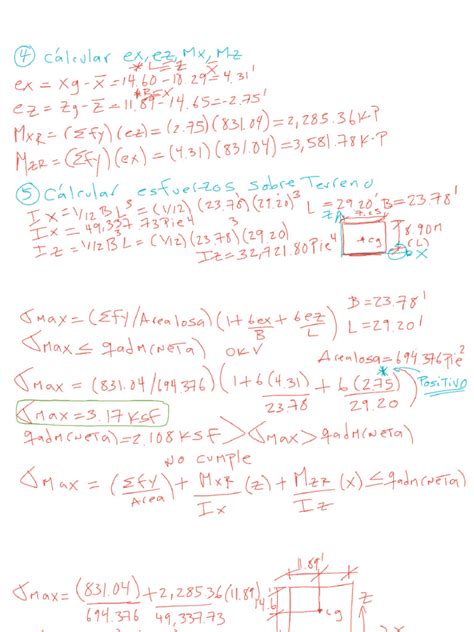 ④ Cálcular ex,ez,Mx,Mz
*L=Z X
ex = xg-x̄=14.60-10.29=4.31'
*B=X
ez = Zg-z̄=11.89-14.65=-2.75'
MxR=(Σfy)(ez)=(2.75)(831.04)=2,285.36K-P
MzR=(Σfy)(ex)=(4.31)(831.04)=3,581.78K-P
⑤ Cálcular esfuerzos sobre Terreno
Ix=1/12BL³=(1/12)(23.78)(29.20)³ L=29.20' B=23.78'
Ix=49,337.73Pie⁴
Iz=1/12B³L=(1/12)(23.78)³(29.20)
Iz=32,721.80Pie⁴
7.25
8.90m
(L)
cg
X
σmax=(Σfy/Arealosa)(1+6ex/B+6ez/L)
B=23.78'
L=29.20'
σmax≤qadm(neta) OK✓
Arealosa=694.376pie²
σmax=(831.04/694.376)(1+6(4.31)/23.78+6(2.75)/29.20)
* Positivo
σmax=3.17KSF
qadm(neta)=2.108KSF > σmax>qadm(neta)
No cumple
σmax=(Σfy/Area)+MxR/Ix(z)+MzR/Iz(x)≤qadm(neta)
11.89'
σmax=(831.04)/694.376+2,285.36(11.89)/49,337.73
14.6
cg
Z